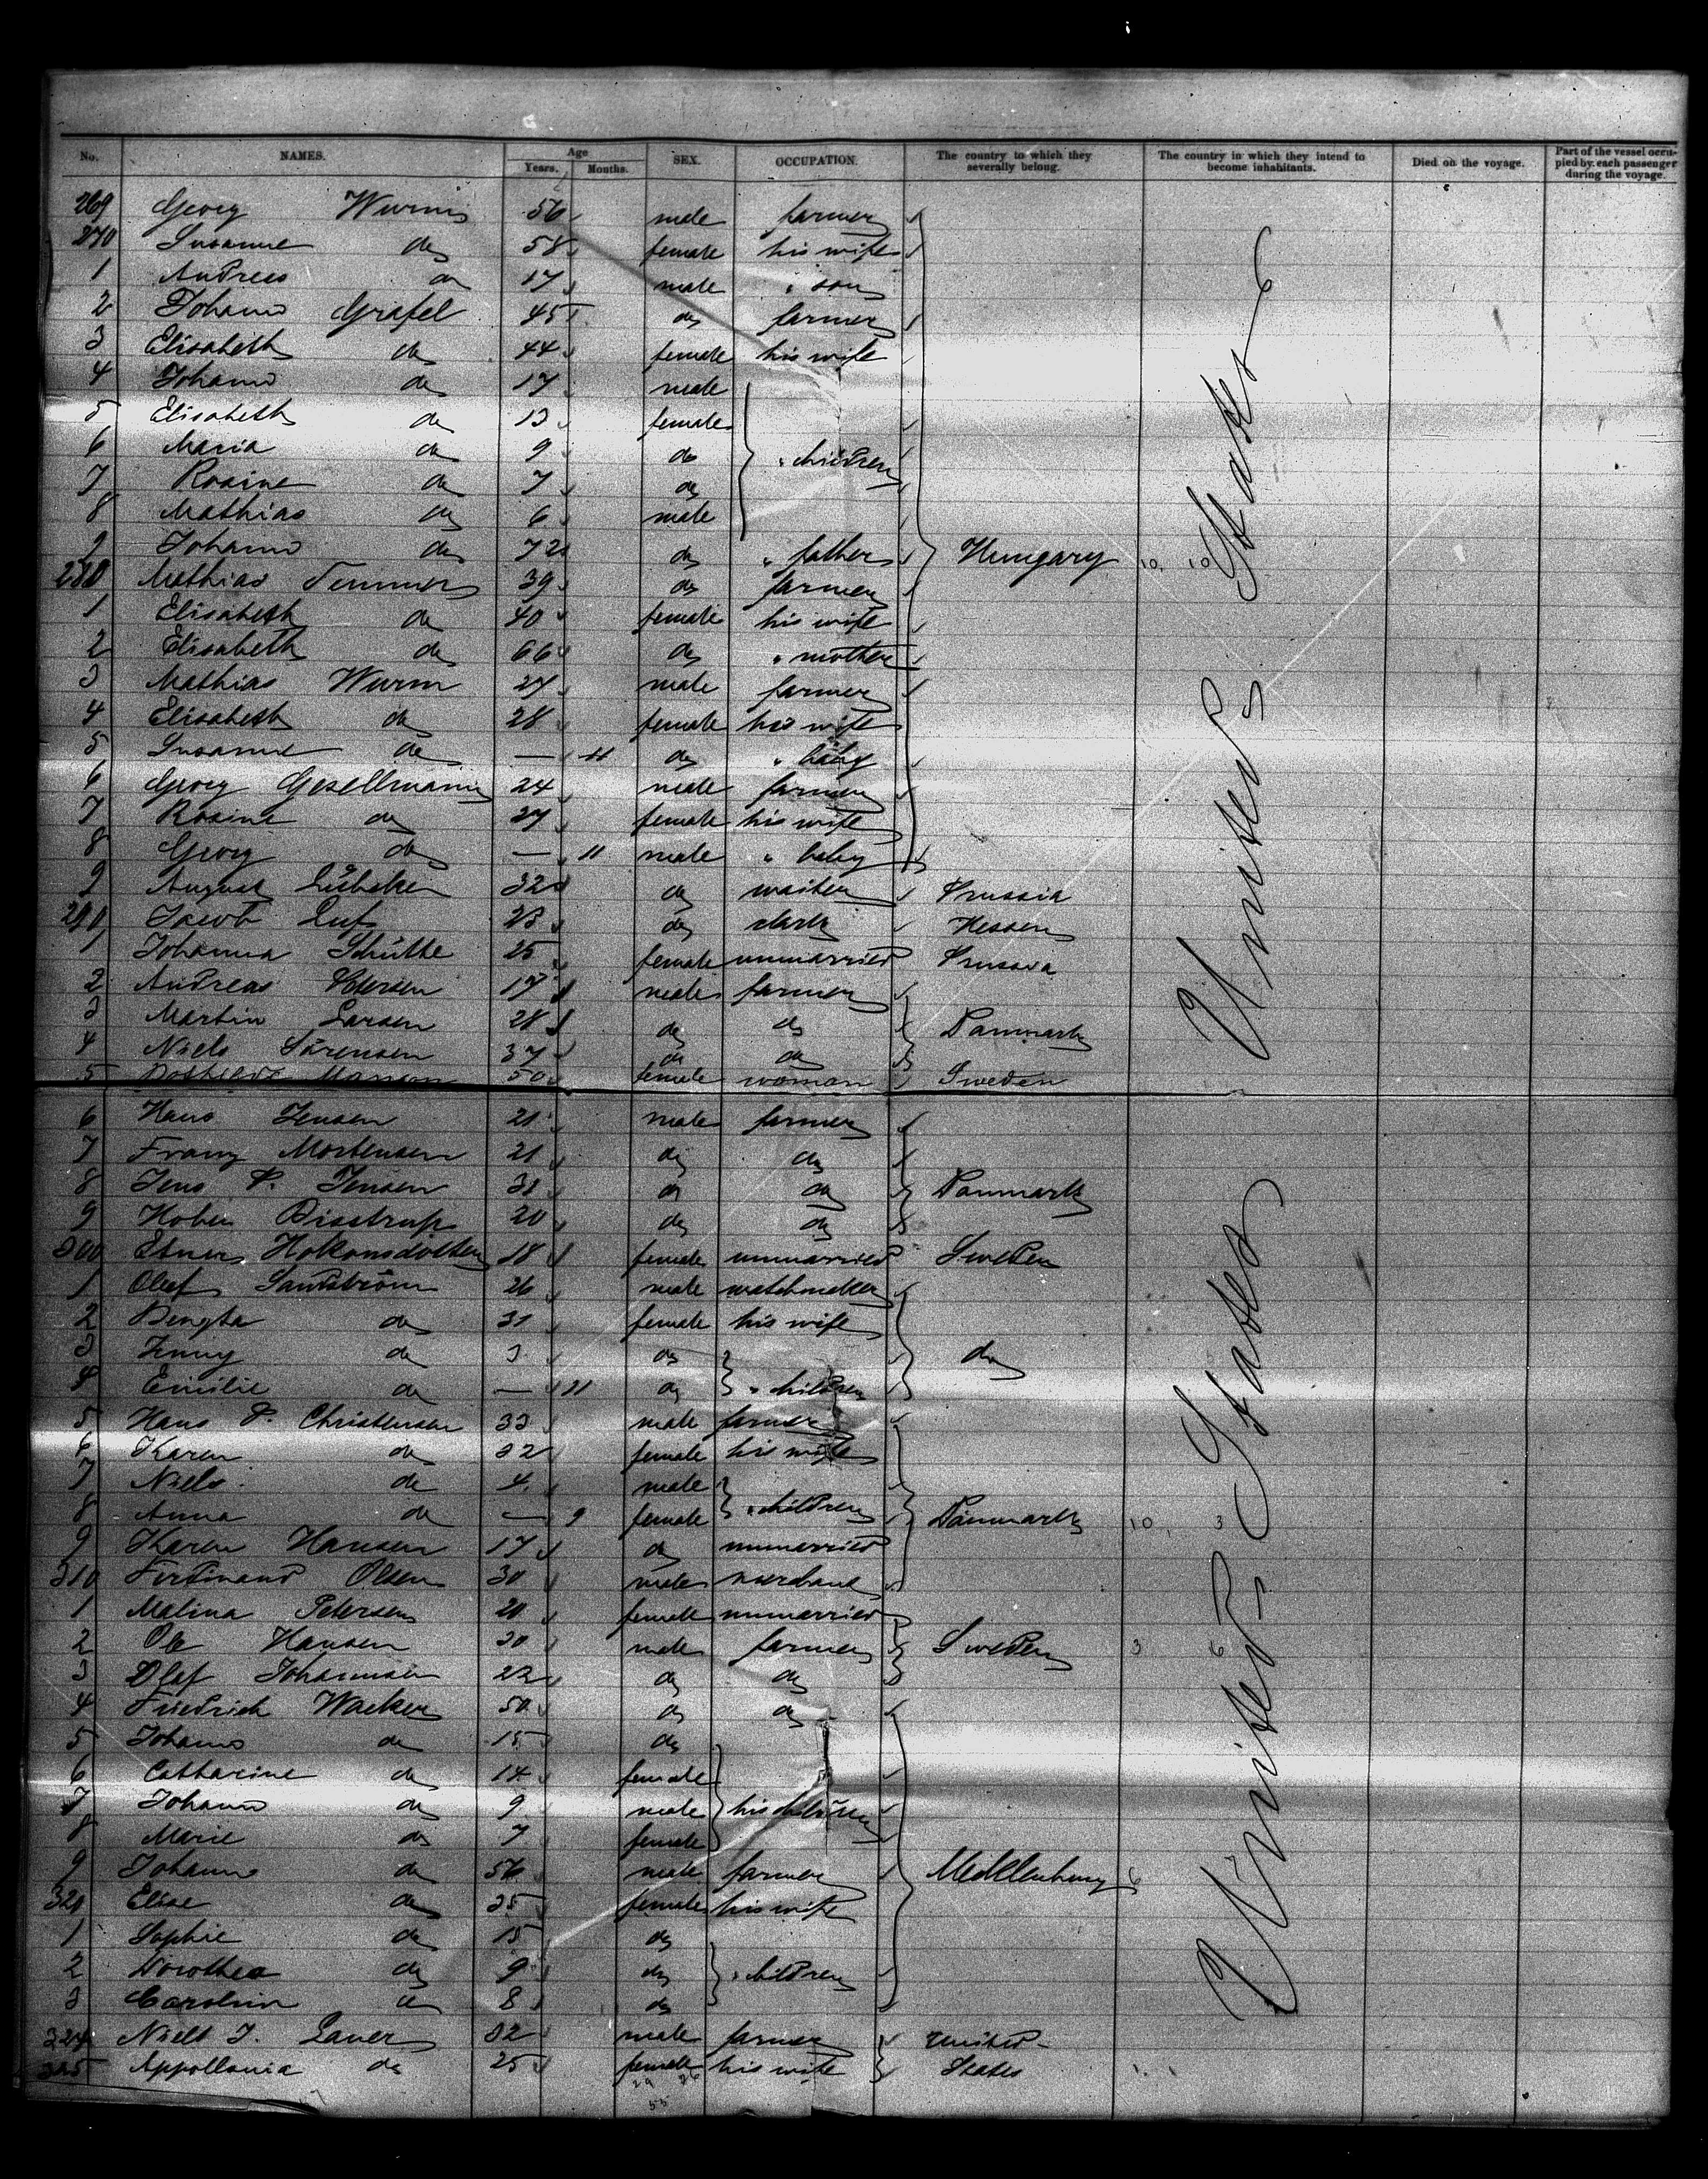 No. NAMES. Age Years. Months. SEX. OCCUPATION. The country to which they severally belong. The country in which they intend to become inhabitants. Died on the voyage. Part of the vessel occupied by each passenger during the voyage.
269 Georg Wurm 56 male farmer
270 Susanne do 58 female his wife
1 Andreas do 17 male " son
2 Johann Grafel 45 do farmer
3 Elisabeth do 44 female his wife
4 Johann do 17 male
5 Elisabeth do 13 female
6 Maria do 9 do " children
7 Rosine do 7 do
8 Mathias do 6 male
9 Johann do 72 do " father Hungary 10 10 United States
280 Mathias 39 do farmer
1 Elisabeth do 40 female his wife
2 Elisabeth do 66 do " mother
3 Mathias Wurm 27 male farmer
4 Elisabeth do 28 female his wife
5 Susanne do — 11 do " baby
6 Georg Gesellmann 24 male farmer
7 Rosine do 27 female his wife
8 Georg do — 11 male " baby
9 August 32 do waiter Prussia
290 Jacob Luf 23 do clerk Hessen
1 Johanna Schütte 25 female unmarried Prussia
2 Andreas Petersen 17 male farmer
3 Martin Larsen 28 do do Danmark
4 Niels Sörensen 37 do do
5 50 female woman Sweden
6 Hans Jensen 21 male farmer
7 Franz Mortensen 21 do do
8 Jens P. Jensen 31 do do Danmark
9 Bisstrup 20 do do
300 Hokansdotter 18 female unmarried Sweden
1 Olof Sandström 26 male watchmaker
2 Bengta do 31 female his wife
3 do 3 do do
4 Emilie do — 11 do " children
5 Hans P. Christensen 33 male farmer
6 Karen do 32 female his wife
7 Niels do 4 male
8 Anna do — 9 female " children Danmark 10 3 United States
9 Karen Hansen 17 do unmarried
310 Ferdinand Olsen 30 male merchant
1 Malina Petersen 20 female unmarried
2 Ole Hansen 30 male farmer Sweden 3 6
3 Olef Johannsen 22 do do
4 Friedrich Wacker 50 do do
5 Johann do 15 do
6 Catharine do 14 female
7 Johann do 9 male his children
8 Marie do 7 female
9 Johann do 56 male farmer Mecklenburg 6
320 Elise do 35 female his wife
1 Sophie do 15 do
2 Dorothea do 9 do " children
3 Carolin do 8 do
324 Niels J. Laver 32 male farmer United
325 Appollonia do 25 female his wife States
29 26
55